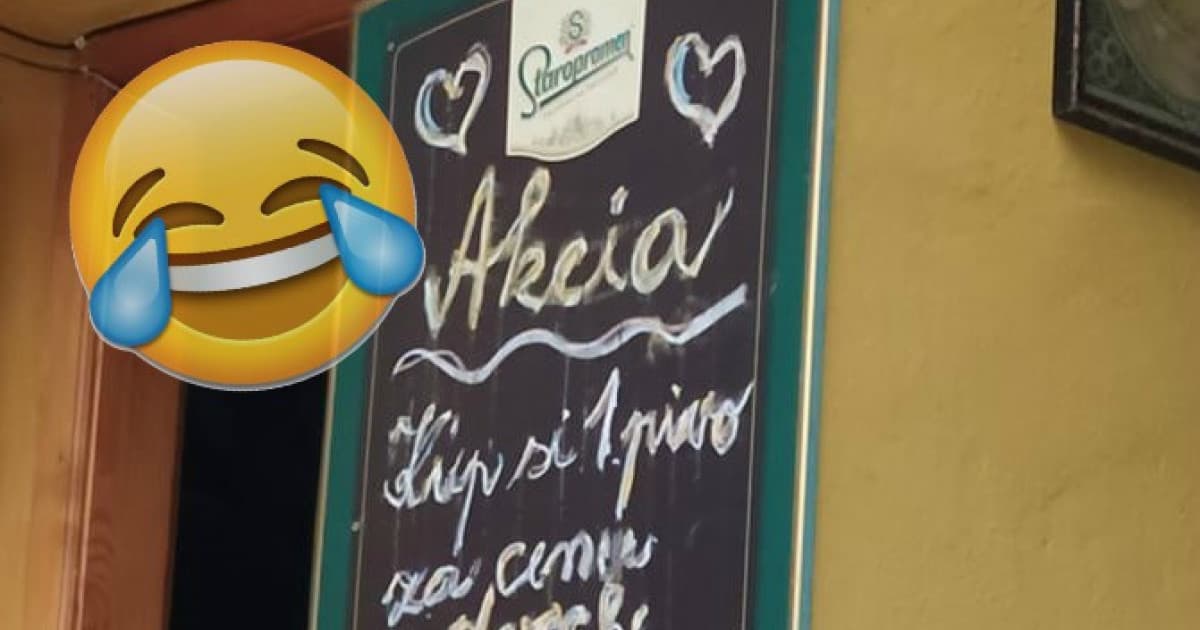 S
Staropramen
Akcia
Kúp si 1 pivo
za cenu